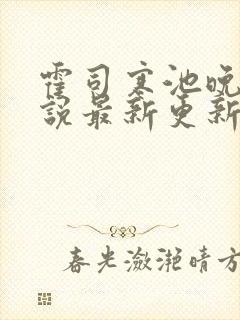 霍司寒池晚
說最新更新
春光瀲滟晴方